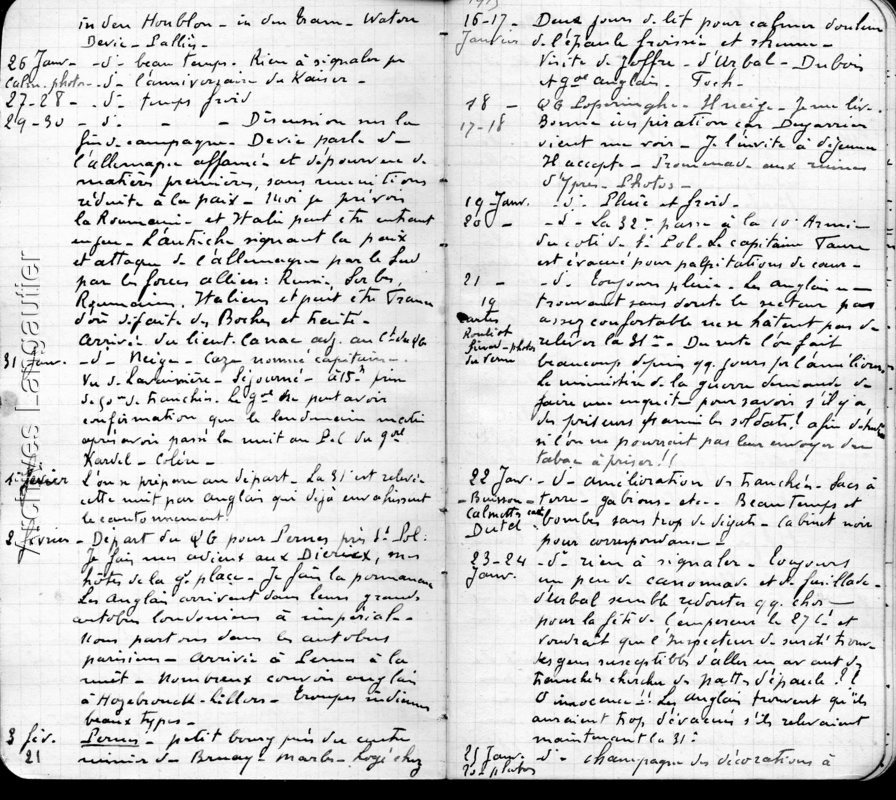 in den Houblon - in den tram - Watou
26 Janv. - d° - beau temps. Rien à signaler
Calm. photos - d° - l'anniversaire du Kaiser -
27-28 - d° - temps froid
29-30 - d° - - Discussion sur la
fin de campagne. Devic parle de
l'allemagne affamée et dépourvue de
matières premières, sans munitions
réduite à la paix - Moi je prévois
la Roumanie - et Italie peut être entrant
en feu - L'Autriche signant la paix
et attaque de l'allemagne par le Sud
par les forces alliées: Russie, Serbes,
Roumains, Italiens et peut être France
d'où défaite des Boches et traité -
Arrivée du lieut. adj. au Ct du QG
31 Janv. - d° - Neige - nommé capitaine -
de tranchée. Le gal ne peut avoir
confirmation que le lendemain matin
après avoir passé la nuit au
Colère -
1er février L'on se prépare au départ - La 31e est relevée
cette nuit par Anglais qui déjà envahissent
le cantonnement.
2 février - Départ du QG pour Pernes près St Pol:
Je fais mes adieux aux mes
hôtes de la gde place - Je fais la permanence
Les Anglais arrivent dans leurs grands
autobus londoniens à impériale -
Nous partons dans les autobus
parisiens - Arrivée à Pernes à la
nuit - Nombreux convois anglais
à Hazebrouck - Lillers - Troupes indiennes
beaux types -
3 fév. Pernes - petit bourg près du centre
21 minier de Bruay - Marles - Logé chez
1915
16-17 - Deux jours de lit pour calmer douleur
Janvier de l'épaule froissée et rhume -
Visite de Joffre - d'Urbal - Dubois
et gal anglais - Foch -
18 - QG Poperinghe - Il neige - Je me lève -
17-18 Bonne inspiration car
vient me voir - Je l'invite à déjeuner
Il accepte - Promenade aux ruines
d'Ypres - Photos -
19 Janv. - d° - Pluie et froid -
20 - - d° - La 32e passe à la 10e Armée
du côté de St Pol. Le capitaine
est évacué pour palpitations de cœur -
21 - - d° - Toujours pluie - Les Anglais ne
19 trouvant sans doute le secteur pas
cartes assez confortable ne se hâtent pas de
relever la 31e - Du reste l'on fait
photos
beaucoup depuis qq. jours pr l'améliorer
Le ministère de la guerre demande de
faire une enquête pour savoir s'il y a
des priseurs parmi les soldats! afin de
si l'on ne pourrait pas leur envoyer du
tabac à priser!!
22 Janv. - d° - amélioration des tranchées - sacs à
- Buisson - terre - gabions - etc - Beau temps et
Calmette bombes sans trop de dégâts - Cabinet noir
pour correspondance -
23-24 - d° - rien à signaler - Toujours
Janv. un peu de canonnade et de fusillade -
d'Urbal semble redouter qq. chose
pour la fête de l'empereur le 27 Ct et
voudrait que l'Inspecteur de santé trouve
des gens susceptibles d'aller en avant des
tranchées chercher des pattes d'épaule!!
O innocence!! Les Anglais trouvent qu'ils
auraient trop d'évacués s'ils relevaient
maintenant la 31e
25 Janv. - d° - Champagne des décorations à
photos
Archives Largautier